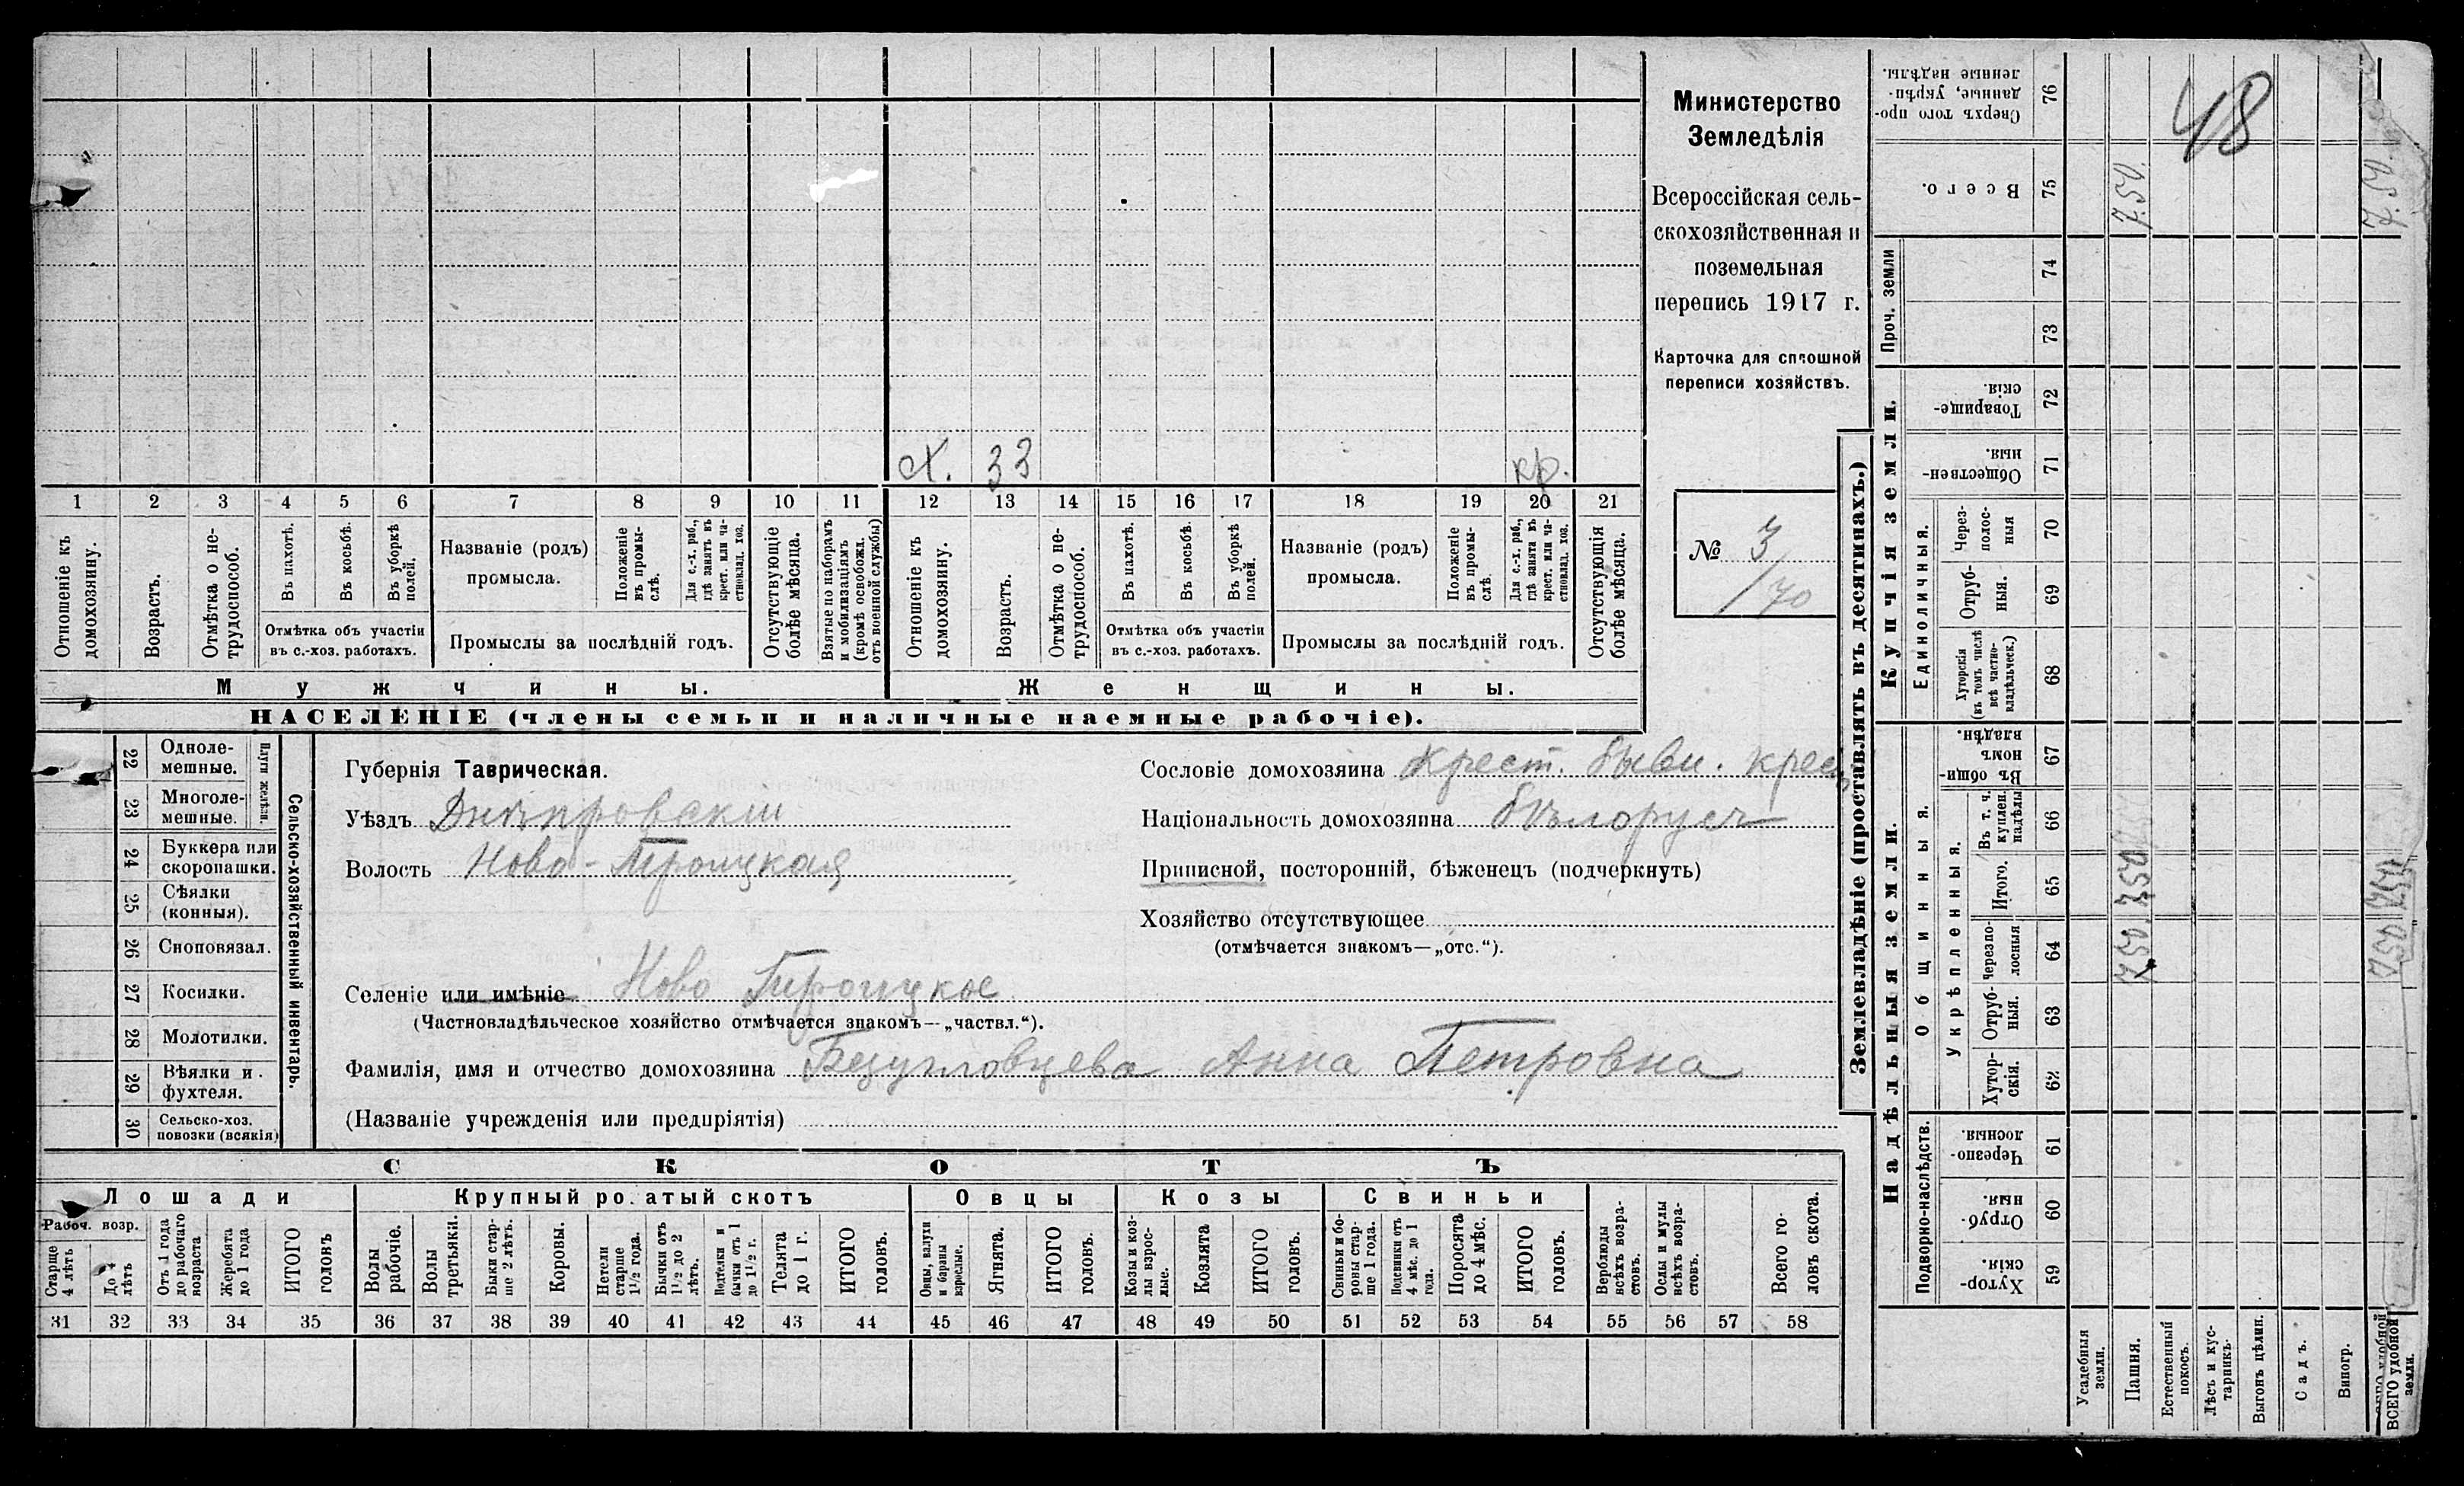 Министерство
Земледѣлія
Всероссійская сель-
скохозяйственная и
поземельная
перепись 1917 г.
Карточка для сплошной
переписи хозяйствъ.
№ 3
/70
х. 33 кр.
1 2 3 4 5 6 7 8 9 10 11 12 13 14 15 16 17 18 19 20 21
Отношеніе къ домохозяину.
Возрастъ.
Отмѣтка о не-трудоспособ.
Въ пахотѣ.
Въ косьбѣ.
Въ уборкѣ полей.
Отмѣтка объ участіи въ с.-хоз. работахъ.
Названіе (родъ) промысла.
Положеніе въ промы-слѣ.
Для с.-х. раб., гдѣ занятъ въ крест. или ча-стновлад. хоз.
Промыслы за послѣдній годъ.
Отсутствующіе болѣе мѣсяца.
Взятые по наборамъ и мобилизаціямъ (кромѣ освобожд. отъ военной службы)
Отношеніе къ домохозяину.
Возрастъ.
Отмѣтка о не-трудоспособ.
Въ пахотѣ.
Въ косьбѣ.
Въ уборкѣ полей.
Отмѣтка объ участіи въ с.-хоз. работахъ.
Названіе (родъ) промысла.
Положеніе въ промы-слѣ.
Для с.-х. раб., гдѣ занята въ крест. или ча-стновлад. хоз.
Промыслы за послѣдній годъ.
Отсутствующія болѣе мѣсяца.
Мужчины. Женщины.
НАСЕЛЕНІЕ (члены семьи и наличные наемные рабочіе).
22 Одноле-мешные.
23 Многоле-мешные.
Плуги желѣзн.
24 Буккера или скоропашки.
25 Сѣялки (конныя).
26 Сноповязал.
27 Косилки.
28 Молотилки.
29 Вѣялки и фухтеля.
30 Сельско-хоз. повозки (всякія)
Сельско-хозяйственный инвентарь.
Губернія Таврическая.
Уѣздъ Днѣпровскій
Волость Ново-Троицкая
Сословіе домохозяина Крест. бывш. крест
Національность домохозяина бѣлорусъ
Приписной, посторонній, бѣженецъ (подчеркнуть)
Хозяйство отсутствующее
(отмѣчается знакомъ—„отс.“).
Селеніе или имѣніе Ново Троицкое
(Частновладѣльческое хозяйство отмѣчается знакомъ—„частвл.“).
Фамилія, имя и отчество домохозяина Безугловцева Анна Петровна
(Названіе учрежденія или предпріятія)
СКОТЪ
Лошади Крупный рогатый скотъ Овцы Козы Свиньи
Рабоч. возр.
Старше 4 лѣтъ
До 4 лѣтъ
Отъ 1 года до рабочаго возраста
Жеребята до 1 года
ИТОГО головъ
Волы рабочіе.
Волы третьяки.
Быки стар-ше 2 лѣтъ.
Коровы.
Нетели старше 1½ года.
Бычки отъ 1½ до 2 лѣтъ.
Подтелки и бычки отъ 1 до 1½ г.
Телята до 1 г.
ИТОГО головъ.
Овцы, валухи и бараны взрослые.
Ягнята.
ИТОГО головъ.
Козы и коз-лы взрос-лые.
Козлята
ИТОГО головъ.
Свиньи и бо-ровы стар-ше 1 года.
Подсвинки отъ 4 мѣс. до 1 года.
Поросята до 4 мѣс.
ИТОГО головъ.
Верблюды всѣхъ возра-стовъ.
Ослы и мулы всѣхъ возра-стовъ.
Всего го-ловъ скота.
31 32 33 34 35 36 37 38 39 40 41 42 43 44 45 46 47 48 49 50 51 52 53 54 55 56 57 58
Землевладѣніе (проставлять въ десятинахъ.)
48
76 Сверхъ того про-данные, укрѣп-ленные надѣлы.
75 Всего. 7.57. 7.57
Проч. земли
74
73
Купчія земли.
72 Товарище-скія.
71 Обществен-ныя.
Единоличныя.
70 Через-полос-ныя
69 Отруб-ныя.
68 Хуторскія (въ томъ числѣ всѣ частно-владѣльческ.)
Надѣльныя земли.
Общинныя.
67 Въ общи-номъ владѣн.
Укрѣпленныя.
66 Въ т. ч. куплен. надѣлы
65 Итого. 7.57
64 Черезпо-лосныя 7.57
63 Отруб-ныя.
62 Хутор-скія.
Подворно-наслѣдств.
61 Черезпо-лосныя.
60 Отруб-ныя.
59 Хутор-скія.
Усадебныя земли.
Пашня.
Естественный покосъ.
Лѣсъ и кус-тарникъ.
Выгонъ цѣлин.
Садъ.
Виногр.
ВСЕГО удобной земли.